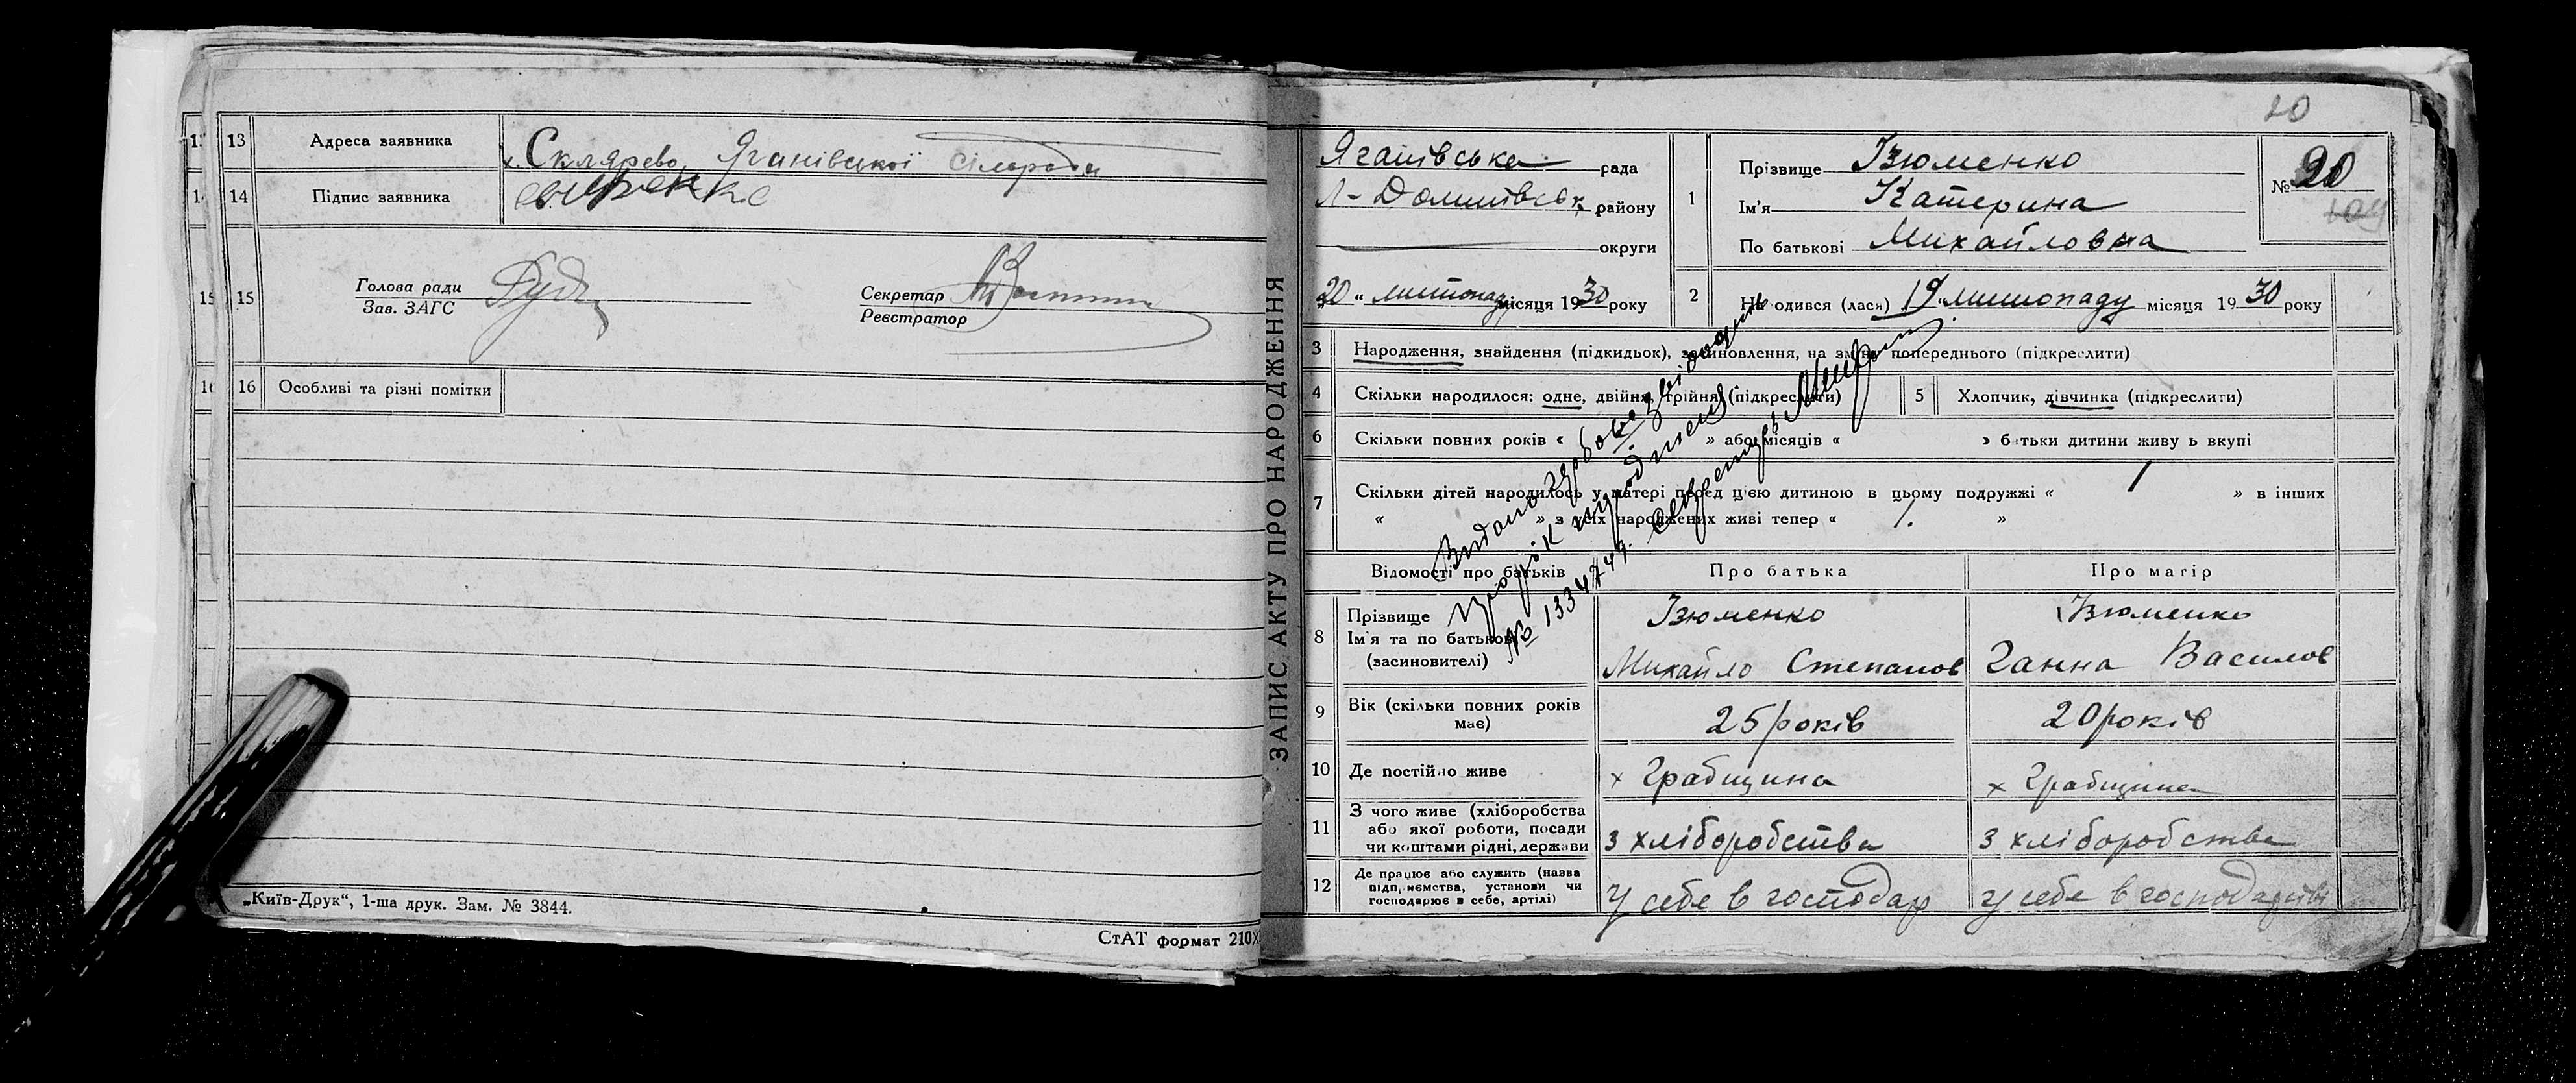 13 Адреса заявника х. Склярево, Яганівської сільради
14 Підпис заявника
15 Голова ради
Зав. ЗАГС
Секретар
Реєстратор
16 Особливі та різні помітки
„Київ-Друк“, 1-ша друк. Зам. № 3844.
СтАТ формат 210Х
ЗАПИС АКТУ ПРО НАРОДЖЕННЯ
20
рада
району
округи
„20“ листопаду місяця 1930 року
1 Прізвище Ізюменко
Ім'я Катерина
По батькові Михайловна
№ 20
2 Народився (лася) „19“ листопаду місяця 1930 року
3 Народження, знайдення (підкидьок), засиновлення, на зміну попереднього (підкреслити)
4 Скільки народилося: одне, двійня, трійня (підкреслити)
5 Хлопчик, дівчинка (підкреслити)
6 Скільки повних років « » або місяців « » батьки дитини живуть вкупі
7 Скільки дітей народилось у матері перед цією дитиною в цьому подружжі « 1 » в інших
« » з усіх народжених живі тепер « 1. »
Видано
№ 1334749.
Відомості про батьків Про батька Про матір
8 Прізвище Ізюменко Ізюменко
Ім'я та по батькові Михайло Степанов Ганна Василов
(засиновителі)
9 Вік (скільки повних років має) 25 років 20 років
10 Де постійно живе х Грабщина х Грабщина
11 З чого живе (хліборобства
або якої роботи, посади
чи коштами рідні, держави З хліборобства З хліборобства
12 Де працює або служить (назва
підприємства, установи чи
господарює в себе, артілі) У себе в господар У себе в господарстві